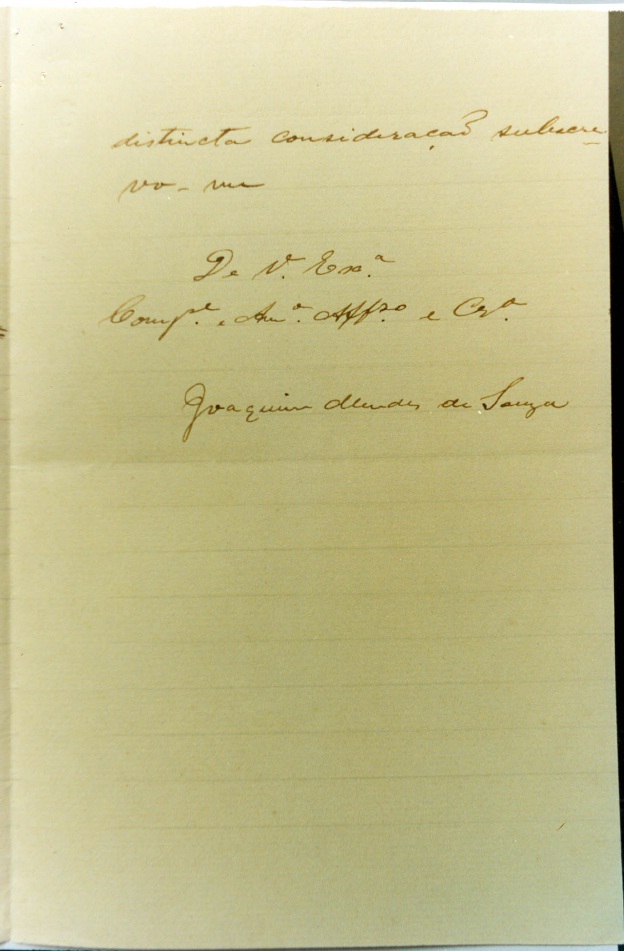 distincta consideração subscre-
vo-me
De V. Exª.
Compe. e Amº. Affºo e Crº.
Joaquim Mendes de Souza